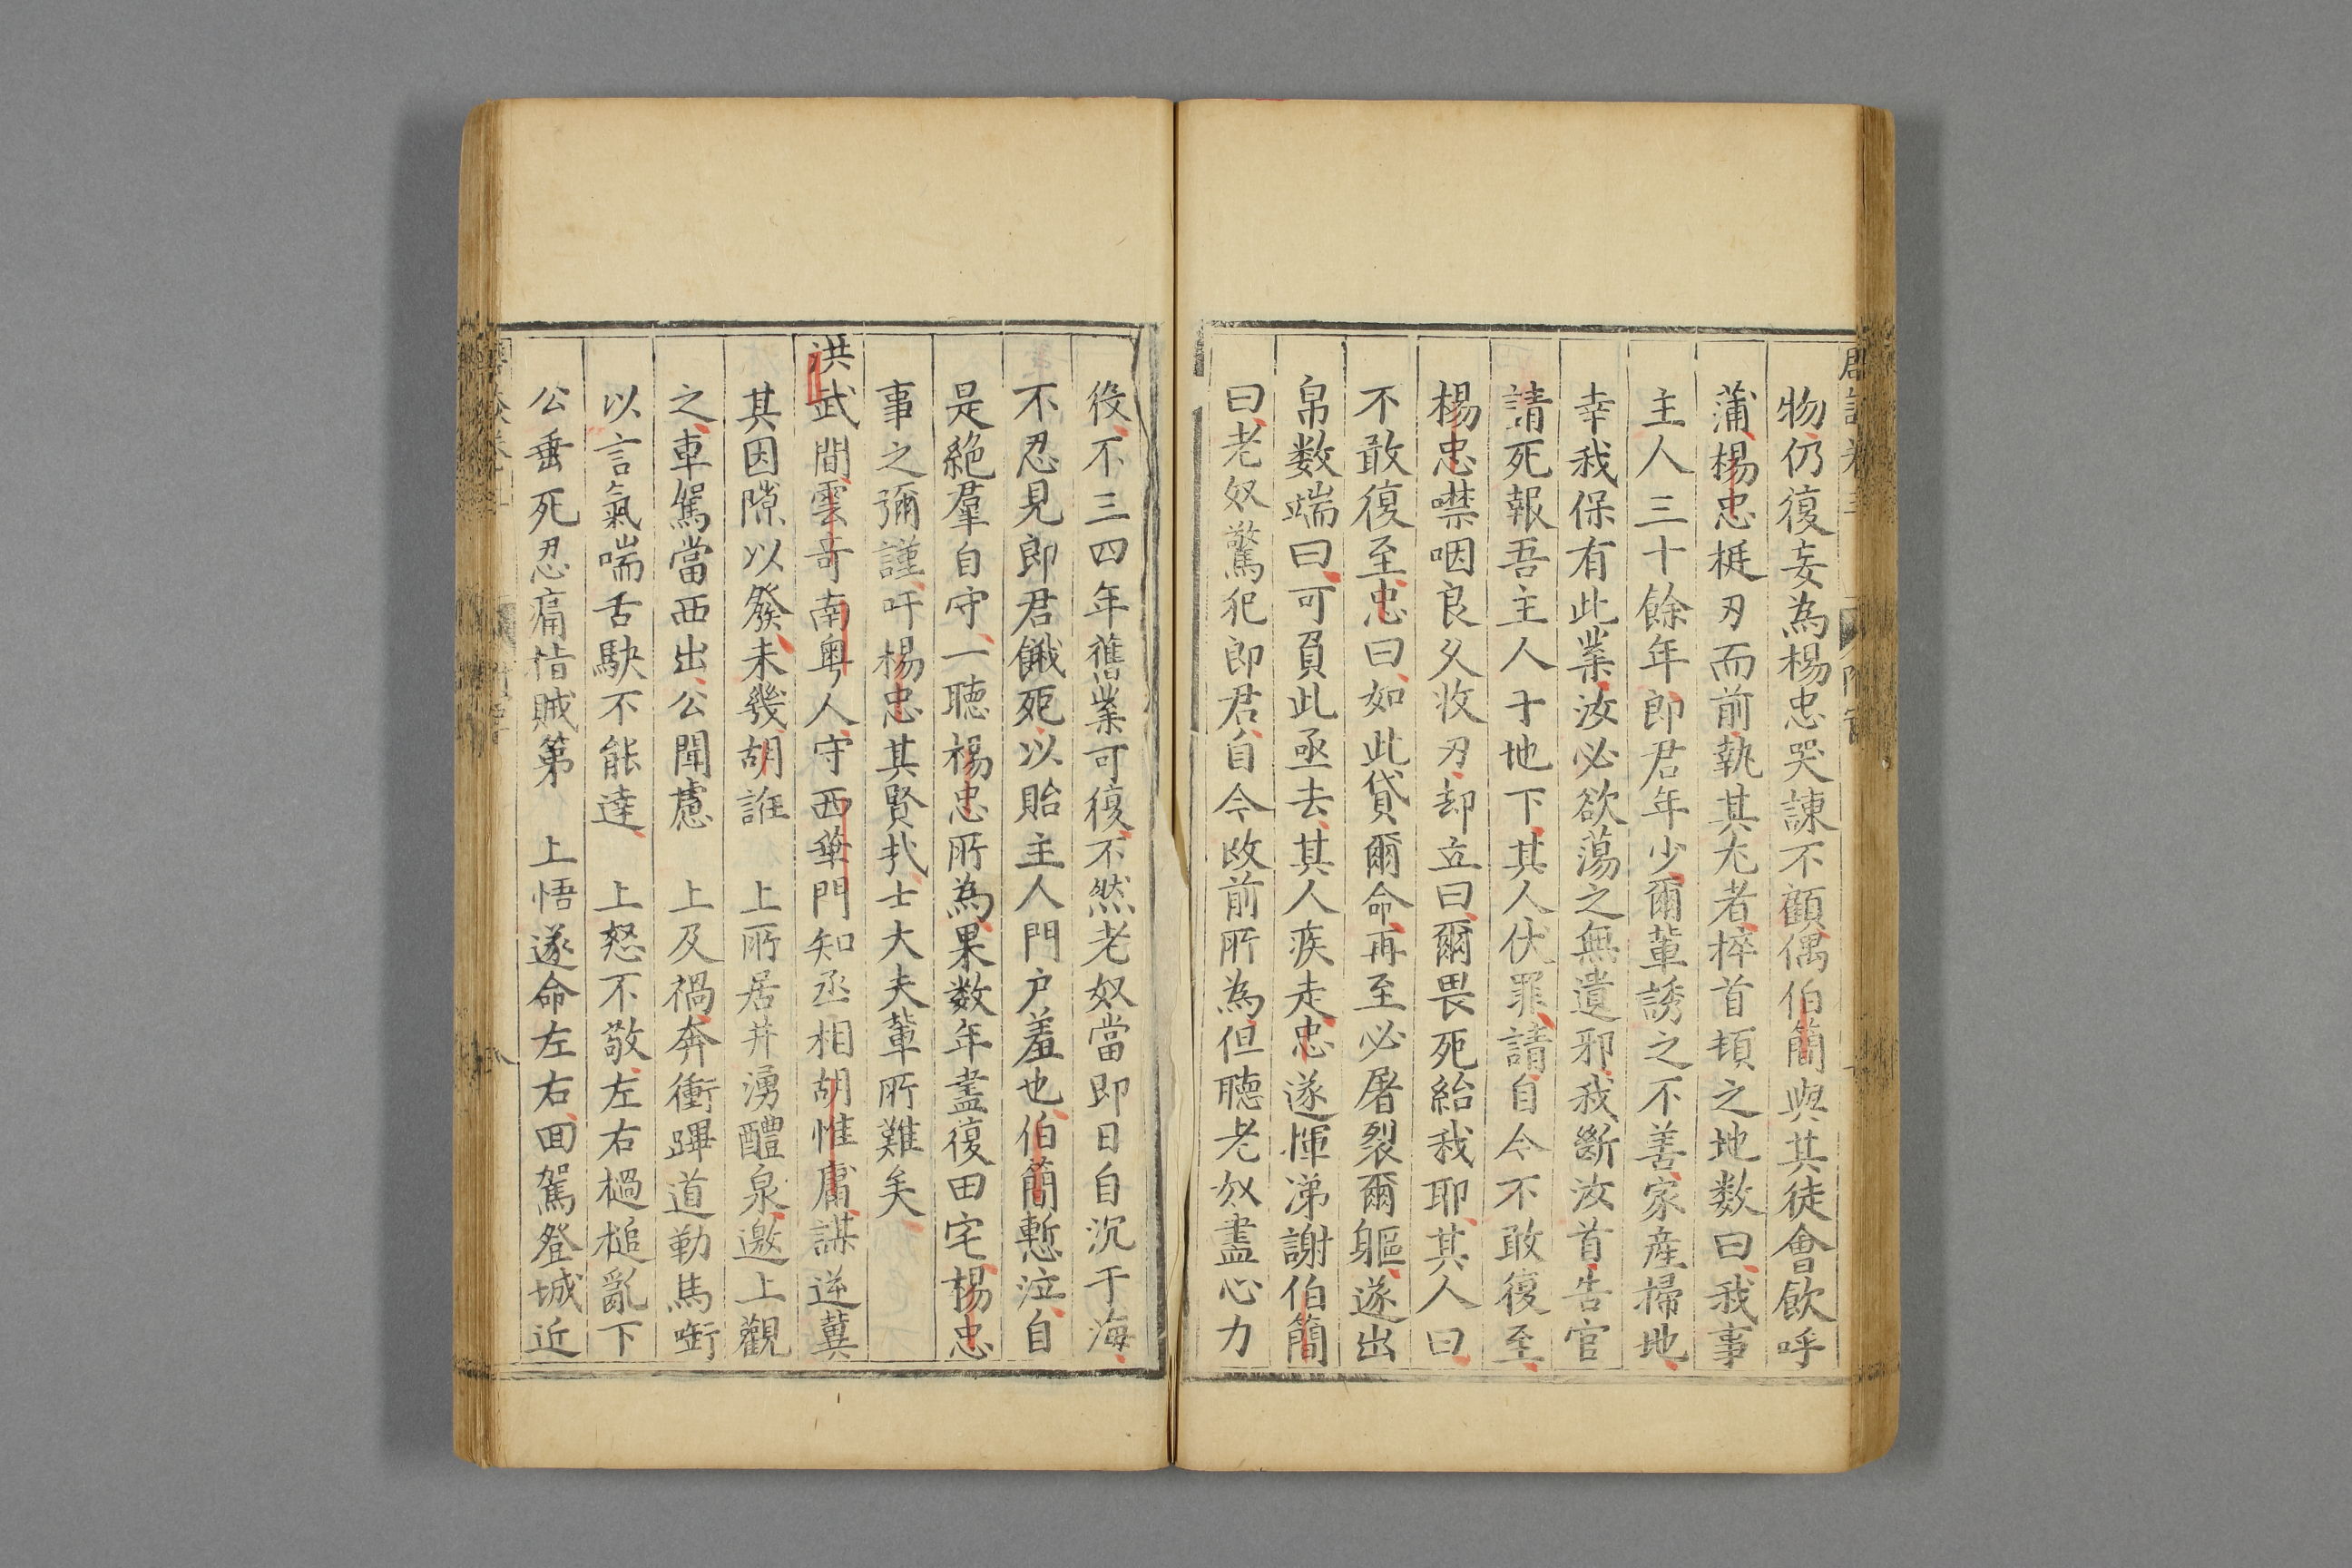 物仍復妄為楊忠哭諫不顧偶伯簡與其徒會飲呼
蒲楊忠梃刃而前執其尤者捽首頓之地数曰我事
主人三十餘年郎君年少爾輩誘之不善家産掃地
幸我保有此業汝必欲蕩之無遺邪我斷汝首告官
請死報吾主人于地下其人伏罪請自今不敢復至
楊忠噤咽良久收刃却立曰爾畏死紿我耶其人曰
不敢復至忠曰如此貸爾命再至必屠裂爾軀遂出
帛数端曰可負此亟去其人疾走忠遂揮涕謝伯簡
曰老奴驚犯郎君自今改前所為但聽老奴盡心力
役不三四年舊業可復不然老奴當即日自沉于海
不忍見郎君餓死以貽主人門户羞也伯簡慙泣自
是絶羣自守一聽楊忠所為果数年盡復田宅楊忠
事之彌謹吁楊忠其賢㢤士大夫輩所難矣
洪武間雲奇南粤人守西華門知丞相胡惟庸謀逆冀
其因隙以發未幾胡誑　上所居井湧醴泉邀上觀
之車駕當西出公聞慮　上及禍奔衝蹕道勒馬銜
以言氣喘舌駃不能達　上怒不敬左右檛搥亂下
公垂死忍痛指賊第　上悟遂命左右回駕登城近